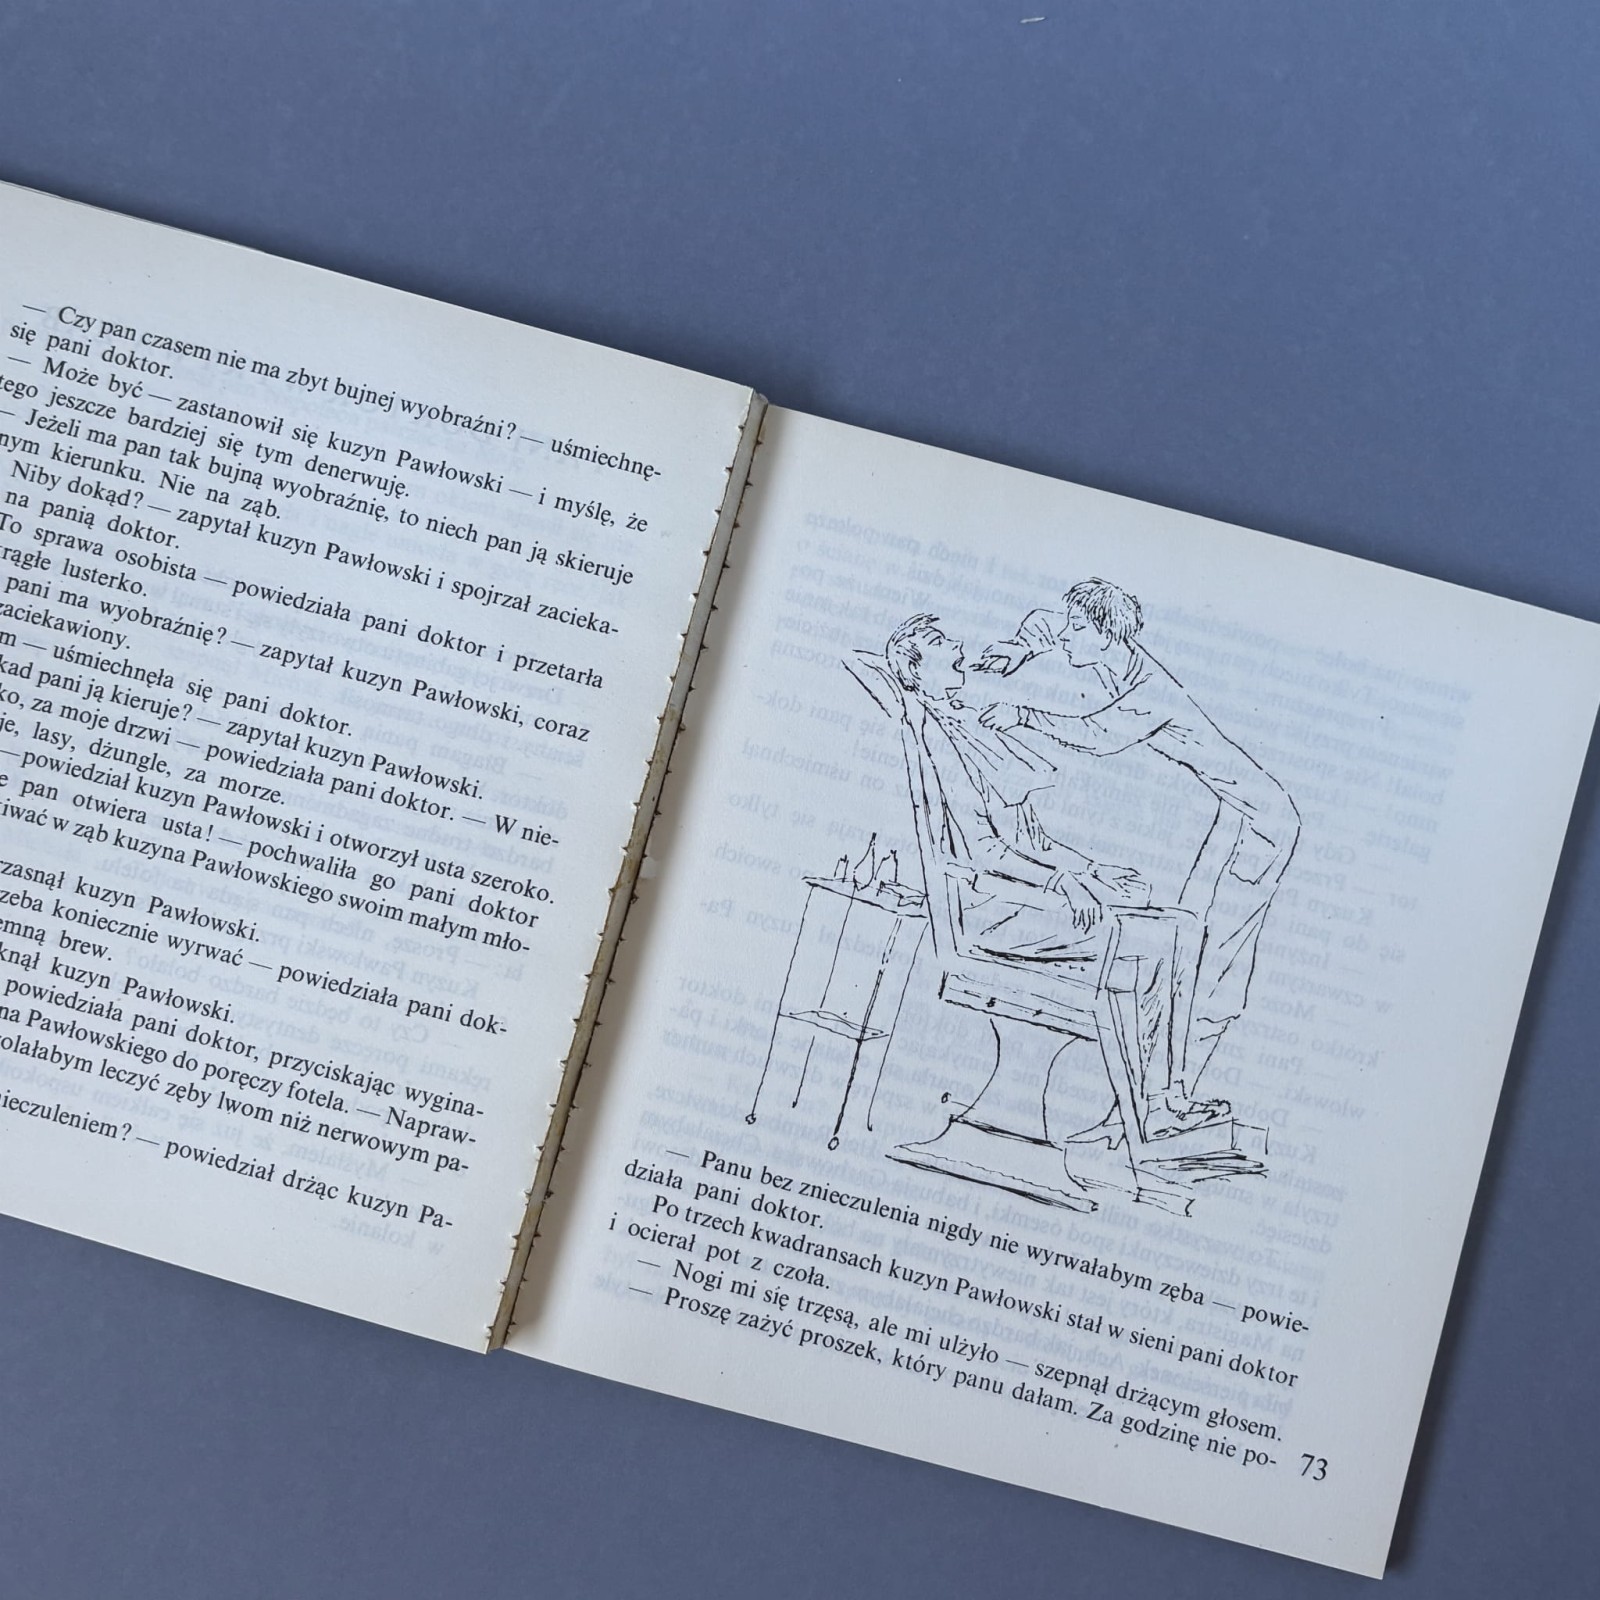 — Czy pan czasem nie ma zbyt bujnej wyobraźni? — uśmiechnę-
się pani doktor.
— Może być — zastanowił się kuzyn Pawłowski — i myślę, że
tego jeszcze bardziej się tym denerwuję.
— Jeżeli ma pan tak bujną wyobraźnię, to niech pan ją skieruje
nym kierunku. Nie na ząb.
Niby dokąd? — zapytał kuzyn Pawłowski i spojrzał zacieka-
na panią doktor.
To sprawa osobista — powiedziała pani doktor i przetarła
rągłe lusterko.
pani ma wyobraźnię? — zapytał kuzyn Pawłowski, coraz
zaciekawiony.
m — uśmiechnęła się pani doktor.
kąd pani ją kieruje? — zapytał kuzyn Pawłowski.
ko, za moje drzwi — powiedziała pani doktor. — W nie-
je, lasy, dżungle, za morze.
— powiedział kuzyn Pawłowski i otworzył usta szeroko.
e pan otwiera usta! — pochwaliła go pani doktor
kiwać w ząb kuzyna Pawłowskiego swoim małym mło-
rzasnął kuzyn Pawłowski.
zeba koniecznie wyrwać — powiedziała pani dok-
emną brew.
knął kuzyn Pawłowski.
powiedziała pani doktor, przyciskając wygina-
na Pawłowskiego do poręczy fotela. — Napraw-
olałabym leczyć zęby lwom niż nerwowym pa-
nieczuleniem? — powiedział drżąc kuzyn Pa-
— Panu bez znieczulenia nigdy nie wyrwałabym zęba — powie-
działa pani doktor.
Po trzech kwadransach kuzyn Pawłowski stał w sieni pani doktor
i ocierał pot z czoła.
— Nogi mi się trzęsą, ale mi ulżyło — szepnął drżącym głosem.
— Proszę zażyć proszek, który panu dałam. Za godzinę nie po-
73